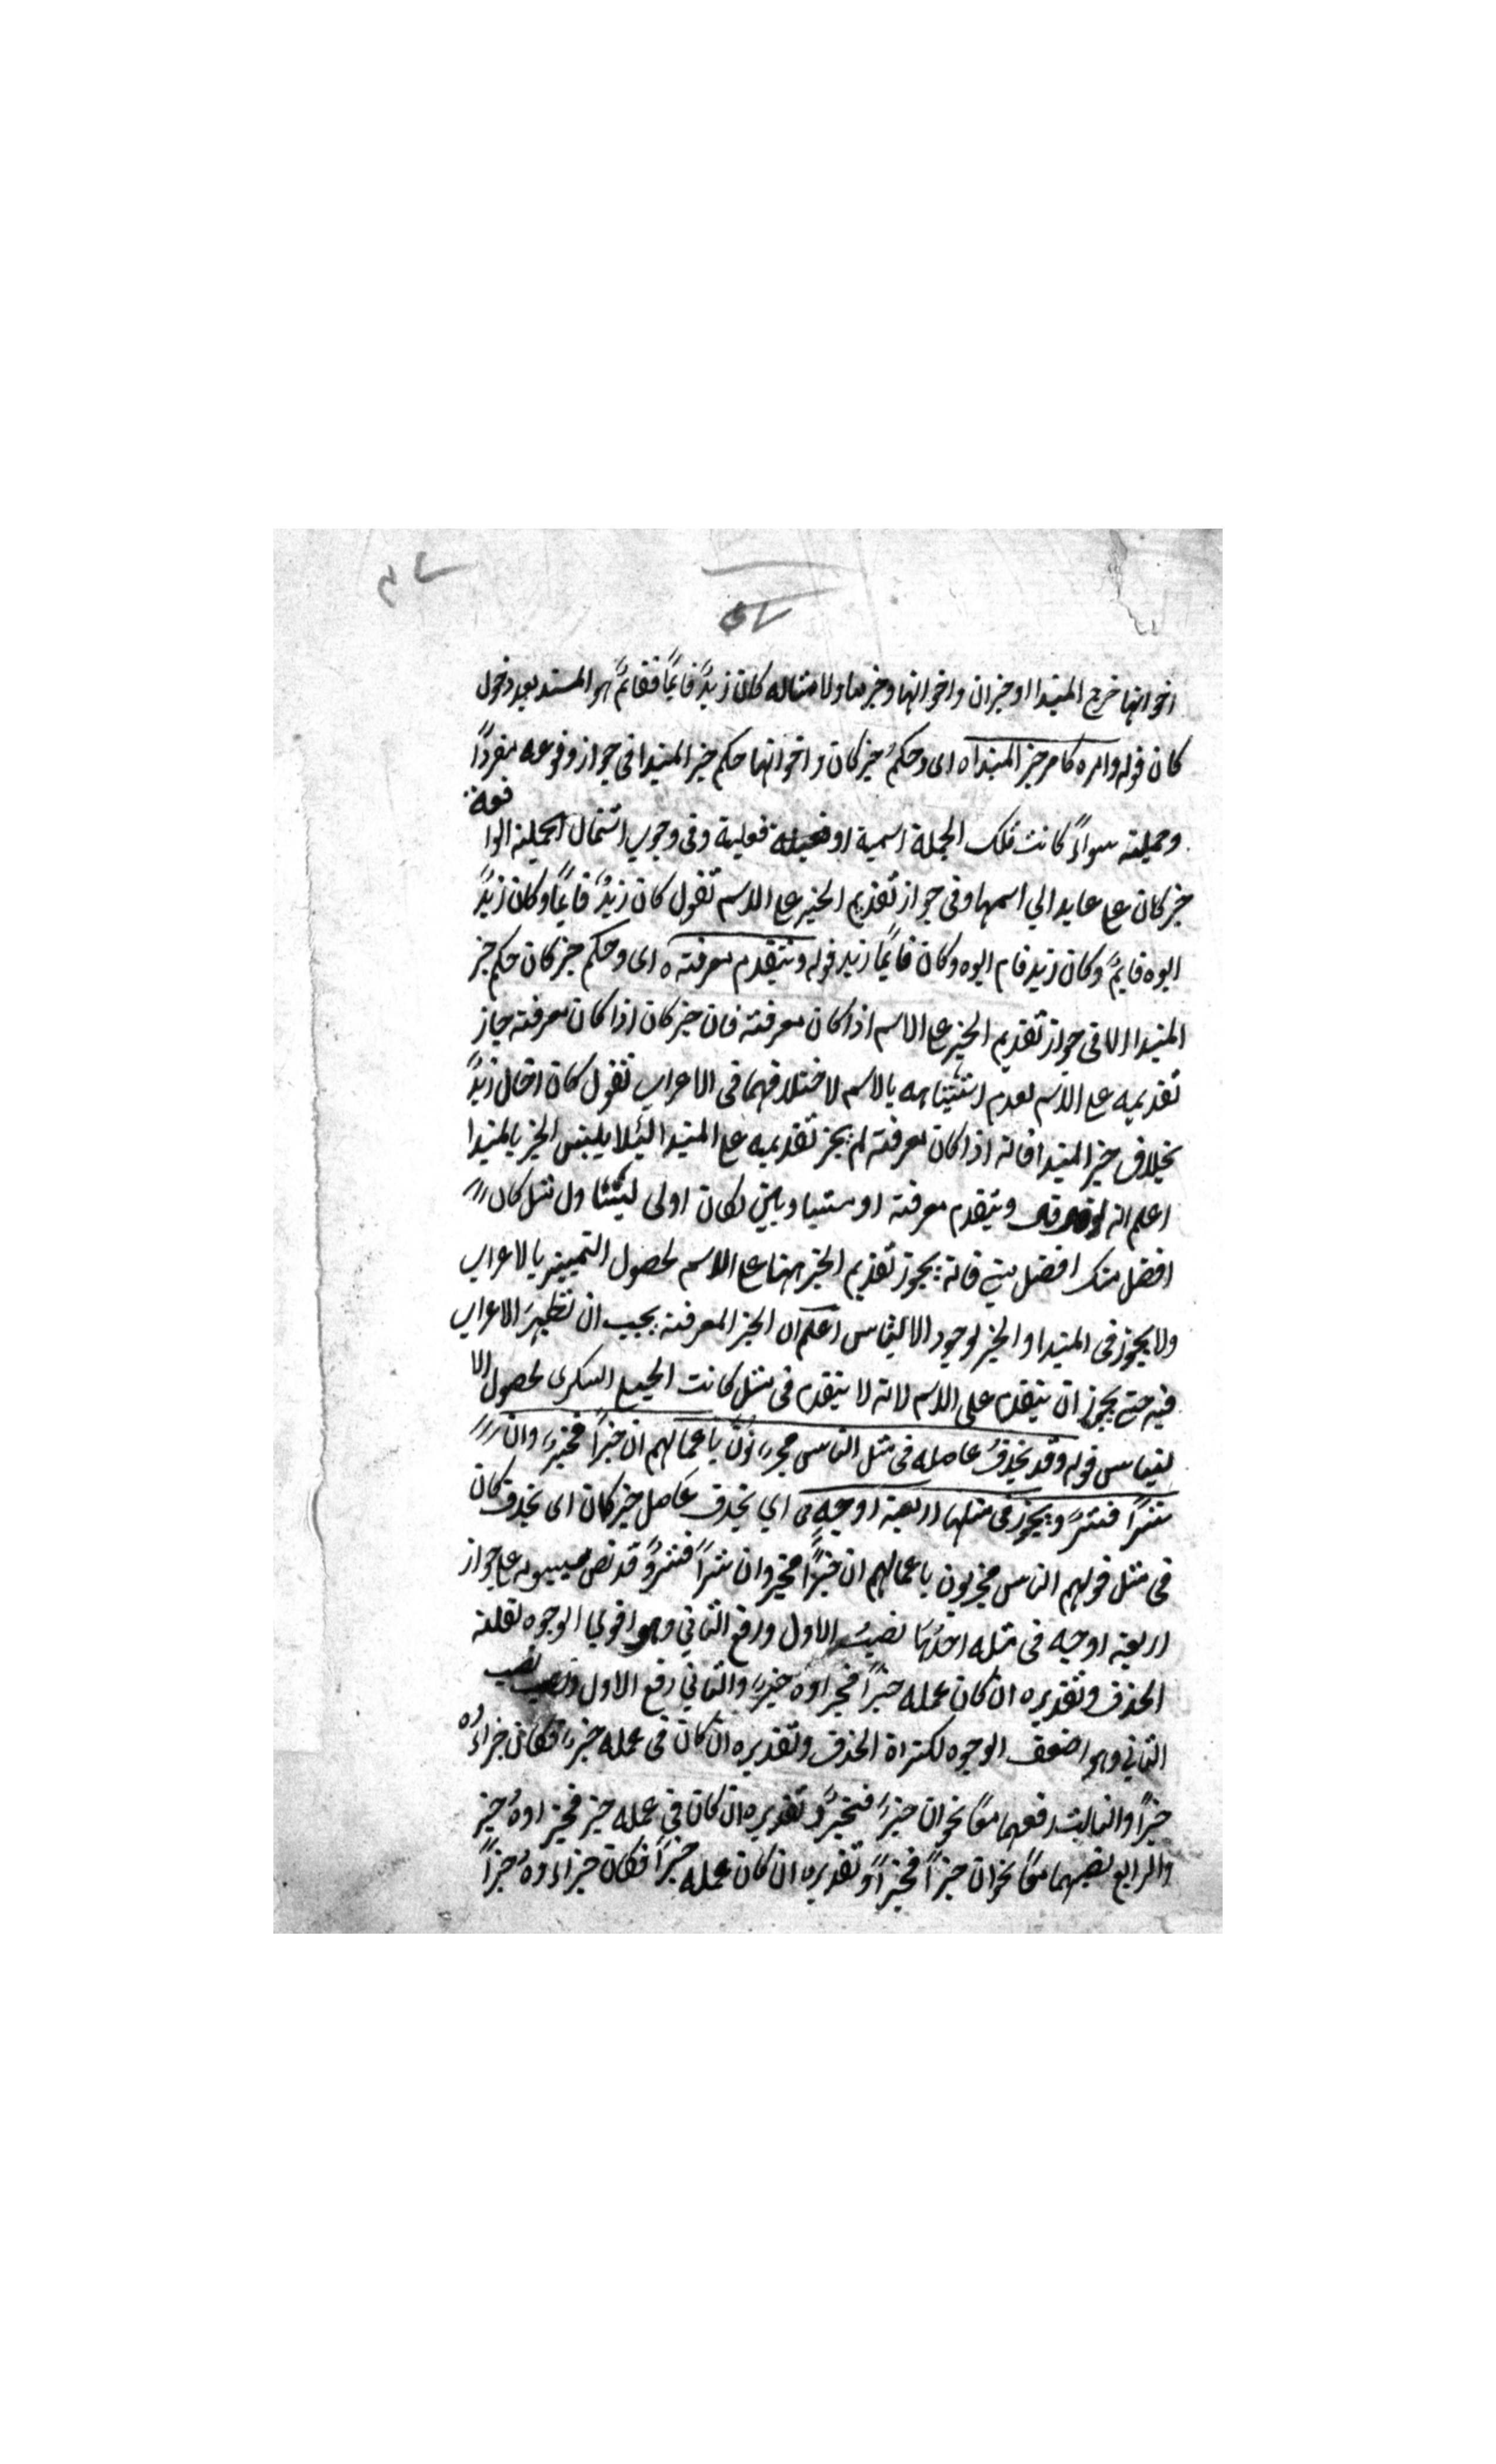 اخواتها خرج المبتدا او خبران واخواتها وخبر ما ولا مثاله كان زيدٌ قايمًا فقايمٌ هو المسند بعد دخول
كان قوله وامره كامر خبر المبتداه اى وحكمُ خبر كان واخواتها حكم خبر المبتدا فى جواز وقوعه مفردًا
وجملة سواءً كانت تلك الجملة اسمية او فعلية وفى وجوب اشتمال الجملة الوا
قعة
خبر كان على عايد الي اسمها وفى جواز تقديم الخبر على الاسم تقول كان زيدٌ قايمًا وكان زيدٌ
ابوه قايمٌ وكان زيد قام ابوه وكان قايمًا زيد قوله ويتقدم معرفة ه اى وحكم خبر كان حكم خبر
المبتدا الا فى جواز تقديم الخبر على الاسم اذا كان معرفة فان خبر كان اذا كان معرفة جاز
تقديمه على الاسم لعدم اشتباهه بالاسم لاختلافهما فى الاعراب تقول كان اخاك زيدٌ
بخلاف خبر المبتدا فانه اذا كان معرفة لم يجز تقديمه على المبتدا ليلا يلتبس الخبر بالمبتدا
اعلم انه لو قال ويتقدم معرفة او متساويين لكان اولى ليتناول مثل كان
افضل منك افضل مني فانه يجوز تقديم الخبر هنا على الاسم لحصول التمييز بالاعراب
ولا يجوز فى المبتدا والخبر لوجود الالتباس اعلم ان الخبر المعرفة يجب ان تظهرَ الاعراب
فيه حتى يجوز ان يتقدم على الاسم لانه لا يتقدم فى مثل كانت الحبلى السكرى لحصول الا
لتباس قوله وقد يحذفُ عامله فى مثل الناس مجزيّونَ باعمالهم ان خيرًا فخيرٌ وان
شرًا فشرٌ ويجوز فى مثلها اربعة اوجهٍ اي يحذف عامل خبر كان اى يحذف كان
فى مثل قولهم الناس مجزيون باعمالهم ان خيرًا فخير وان شرًا فشرٌ وقد نص سيبويه على جواز
اربعة اوجه فى مثله احدُها نصبُ الاول ورفع الثاني وهو اقوي الوجوه لقلة
الحذف وتقديره ان كان عمله خيرًا فجزاوه خيرٌ والثاني رفع الاول ونصب
الثاني وهو اضعف الوجوه لكثرة الحذف وتقديره ان كان فى عمله خيرٌ فكان جزاءُه
خيرًا والثالث رفعهما معًا نحو ان خيرٌ فخيرٌ وتقديره ان كان في عمله خير فجزاوهُ خير
والرابع نصبهما معًا نحو ان خيرًا فخيرًا وتقديره ان كان عمله خيرًا فكان جزاءوهُ خيرًا